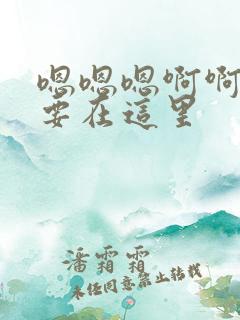 嗯嗯嗯啊啊
要在這里
潘霜霜
未经同意禁止转载